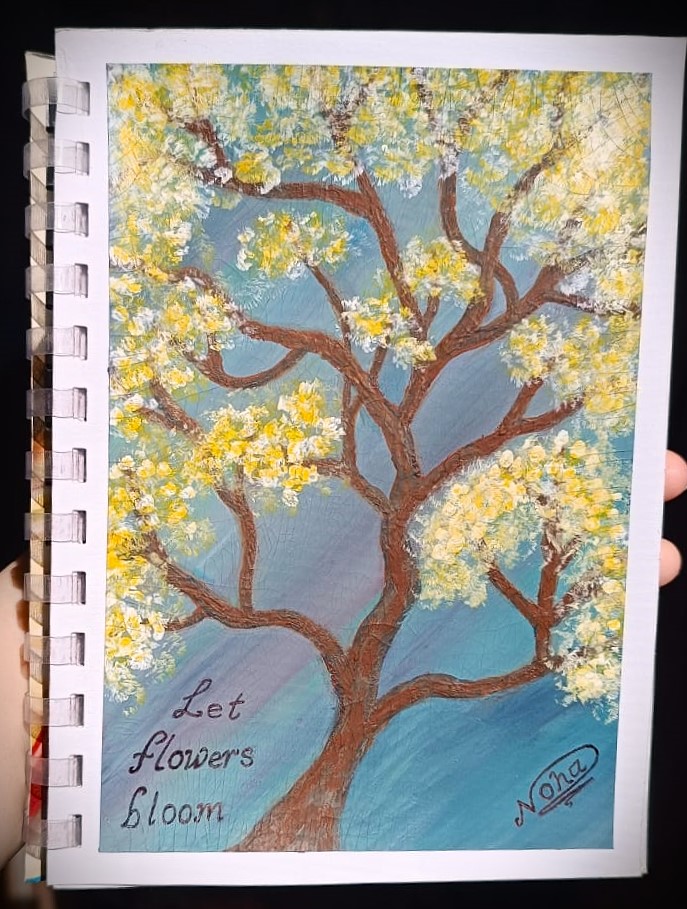 Let
flowers
bloom
Noha